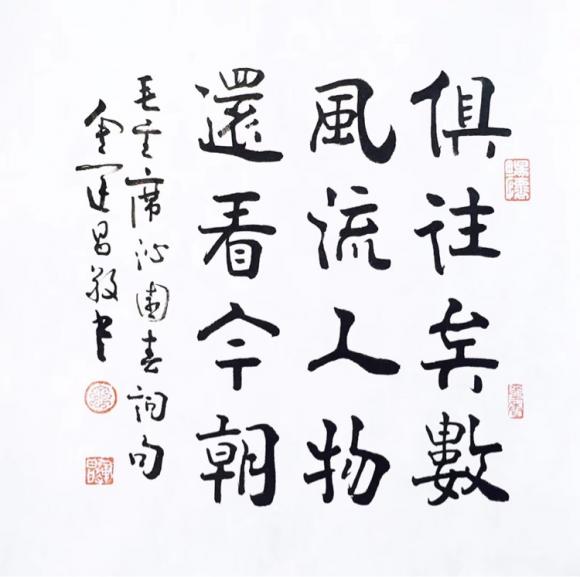 俱往矣數
風流人物
還看今朝
毛主席沁園春詞句
金運昌敬書